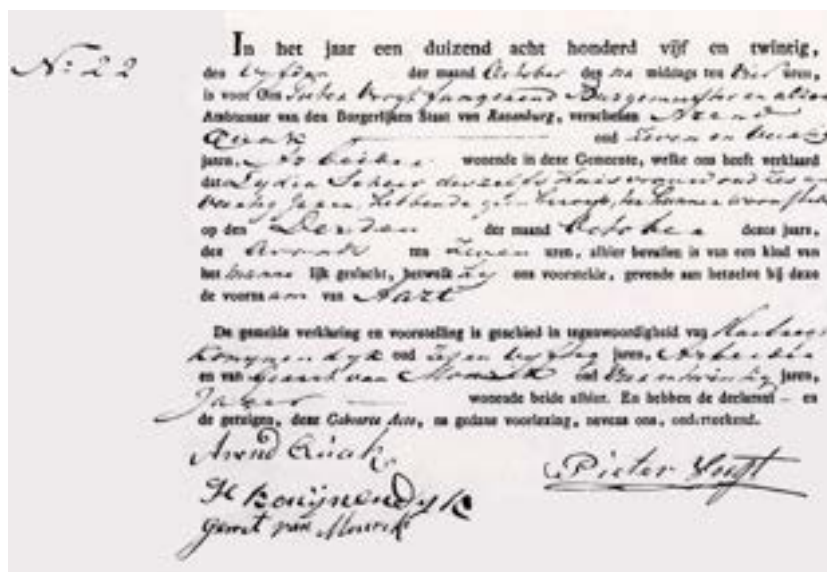 Nº 22
In het jaar een duizend acht honderd vijf en twintig,
den vyfden der maand October des na middags ten vier uren,
is voor Ons Burgemeester en
Ambtenaar van den Burgerlijken Staat van Rozenburg, verschenen Arend
Quak oud zeven en
jaren, Arbeider wonende in deze Gemeente, welke ons heeft verklaard
dat Lydia deszelfs huisvrouw oud zes en
jaren, hebbende geen beroep, ten haren
op den Derden der maand October dezes jaars,
des avonds ten zeven uren, alhier bevallen is van een kind van
het manne lijk geslacht, hetwelk zy ons voorstelde, gevende aan hetzelve bij deze
de voornaam van Aart
De gemelde verklaring en voorstelling is geschied in tegenwoordigheid van
Konynendyk oud zes en vyftig jaren, Arbeider
en van Gerrit van oud jaren,
wonende beide alhier. En hebben de declarant en
de getuigen, deze Geboorte Acte, na gedane voorlezing, nevens ons, onderteekend.
Arend Quak
Pieter
H Konijnendyk
Gerrit van